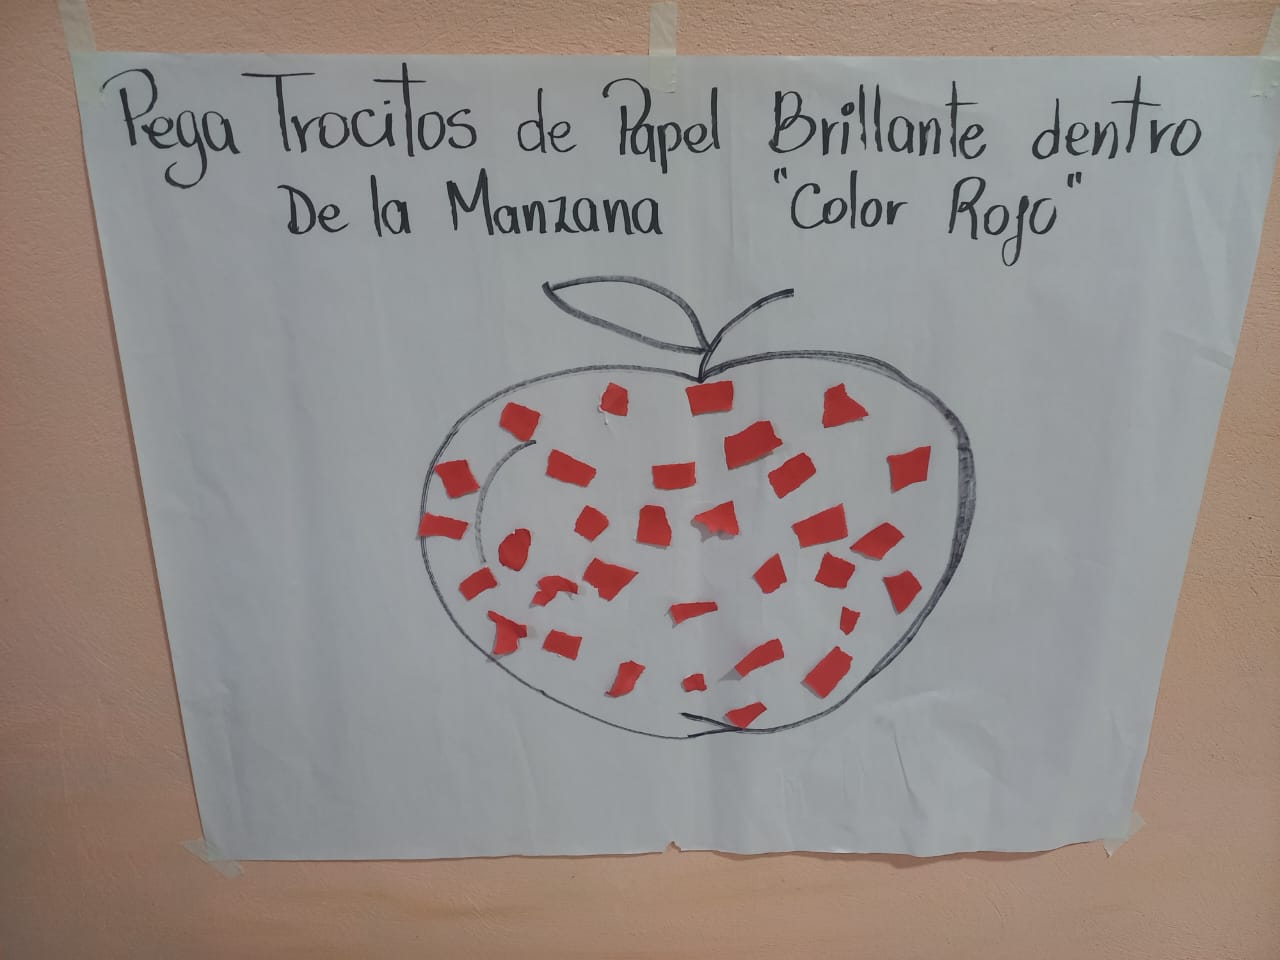 Pega Trocitos de Papel Brillante dentro
De la Manzana "Color Rojo"